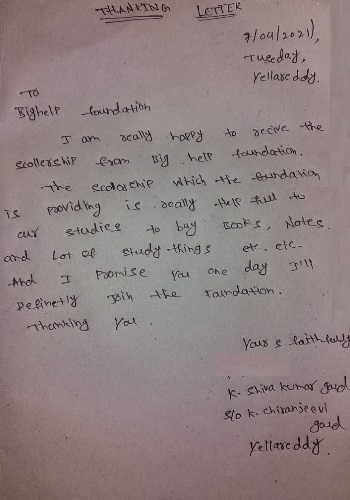 THANKING LETTER
7/04/2021),
Tuesday,
Yellareddy.
To
Bighelp foundation
I am really happy to recive the
scollership from Big help foundation.
The scolorship which the foundation
is providing is really help full to
our studies to buy Books, Notes
and lot of study-things et. etc..
And I promise you one day I'll
Definetly Join the Foundation.
Thanking you.
Your s faithfully
K. Shiva kumar goud
S/o K. chiranjeevi
goud
Yellareddy.